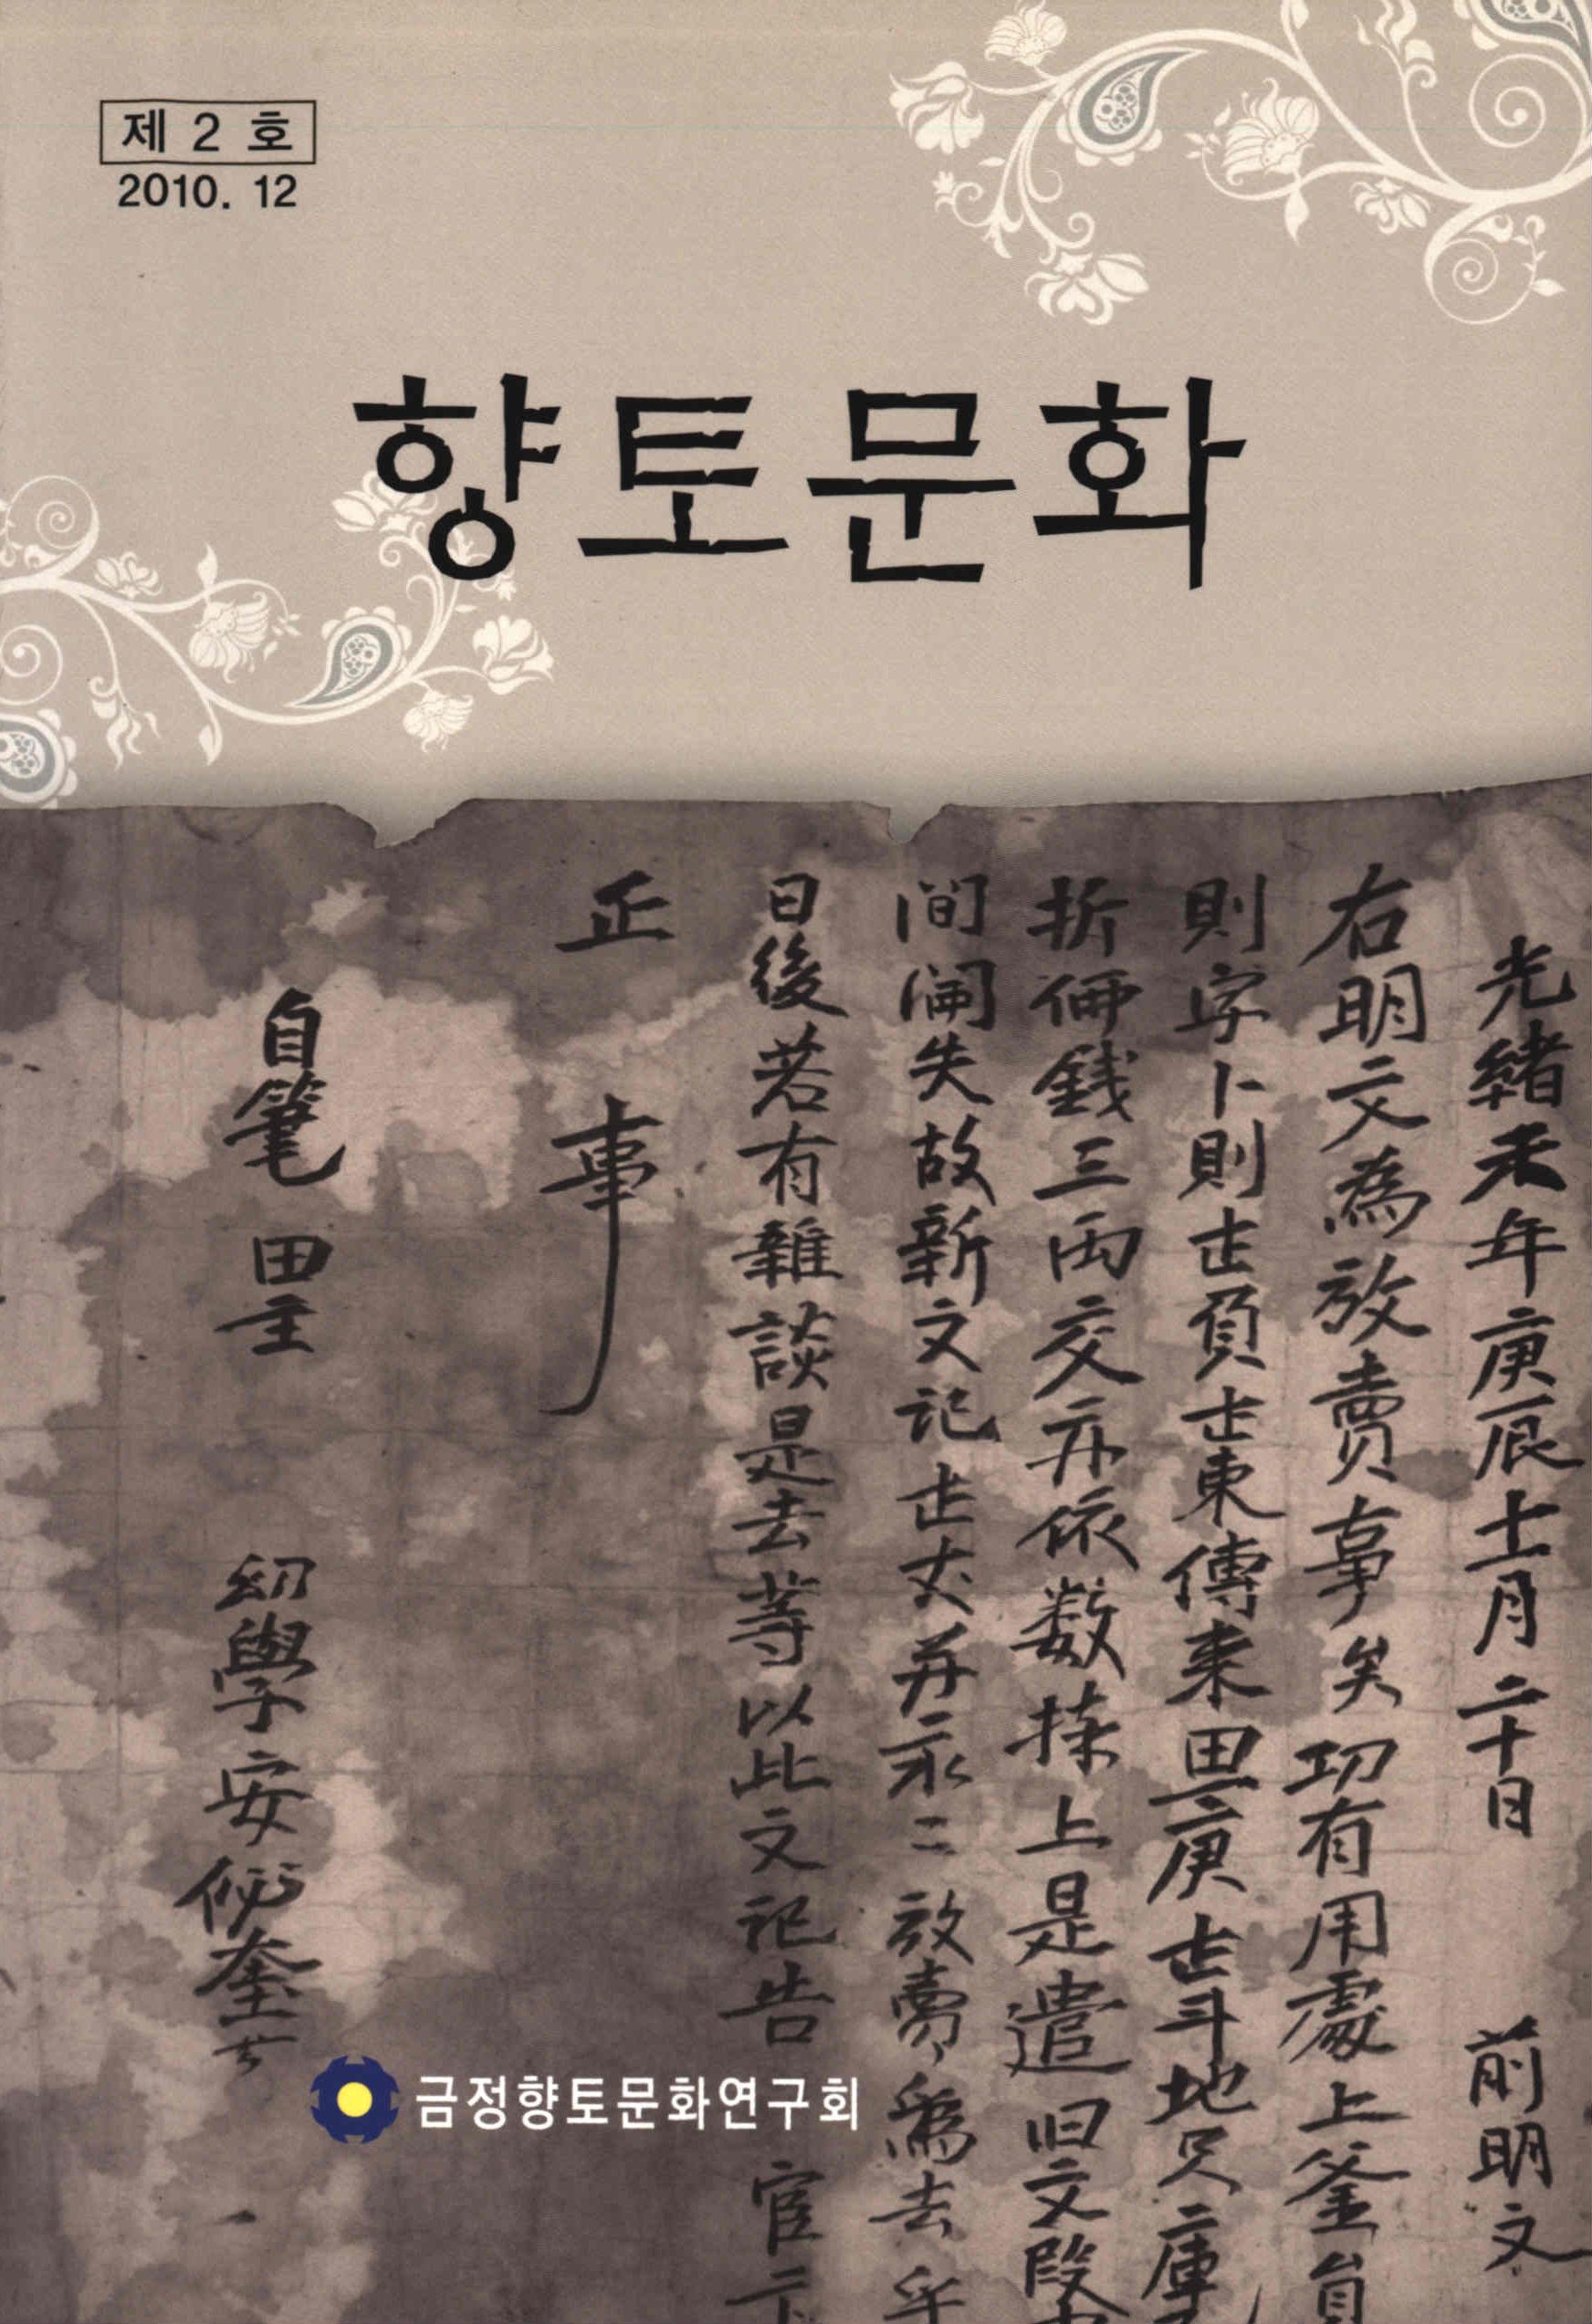 제 2 호
2010. 12
향토문화
光緖 年庚辰十一月二十日 前明文
右明文為放賣事矣 有用處上釜員
則字卜則 負 東傳來 庚 斗地 二庫
折価錢三兩交 依数捧上是遣旧文段
間闹失故新文記 丈并永二放賣為去乎
日後若有雜談是去等以此文記告 官
正 事
自筆 田主 幼學安 奎
금정향토문화연구회